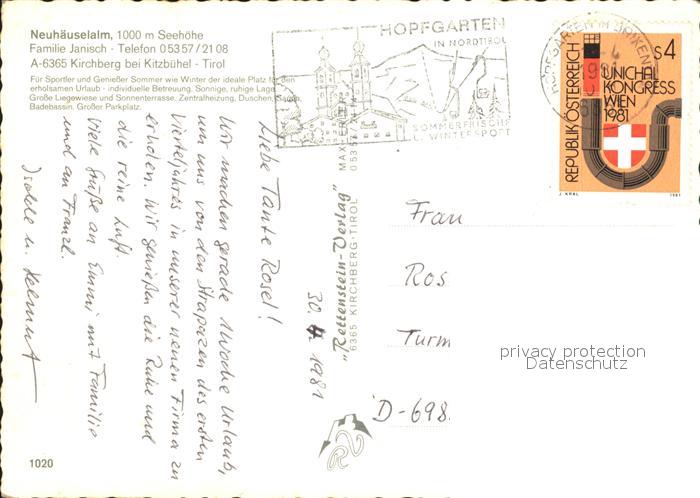 Neuhäuselalm, 1000 m Seehöhe
Familie Janisch - Telefon 0 53 57 / 21 08
A-6365 Kirchberg bei Kitzbühel - Tirol
Für Sportler und Genießer Sommer wie Winter der ideale Platz für den
erholsamen Urlaub - individuelle Betreuung. Sonnige, ruhige Lage.
Große Liegewiese und Sonnenterrasse. Zentralheizung, Duschen, Sauna,
Badebassin. Großer Parkplatz.
HOPFGARTEN
IN NORDTIROL
SOMMERFRISCHE
U. WINTERSPORT
HOPFGARTEN IM BRIXENTAL
REPUBLIK ÖSTERREICH
S4
UNICHAL
KONGRESS
WIEN
1981
J. KRAL
1981
30. 4. 1981
Liebe Tante Rosel!
Wir machen gerade 1 Woche Urlaub,
um uns von den Strapazen des ersten
Vierteljahres in unserer neuen Firma zu
erholen. Wir genießen die Ruhe und
die reine Luft.
Viele Grüße an Emmi mit Familie
und an Franzl.
u. Helmut
"Rettenstein-Verlag"
6365 KIRCHBERG-TIROL
Frau
Ros
Turm
D-698
privacy protection
Datenschutz
1020